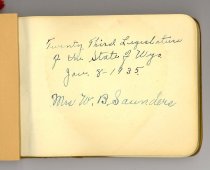 Twenty Third Legislature
of the State of Wyo
Jan. 8-1935
Mrs W. B. Saunders